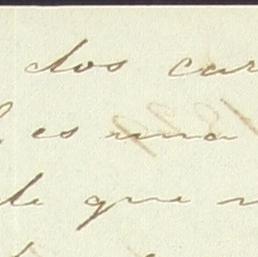 dos car
es una
de que